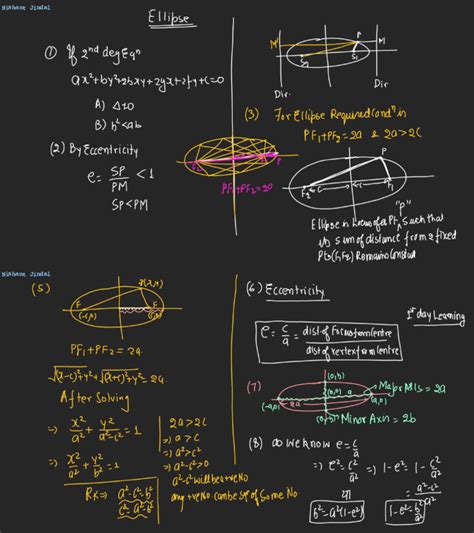 Nishant Jindal
Ellipse
① If 2nd deg Eqn
ax²+by²+2hxy+2gx+2fy+c=0
A) Δ≠0
B) h²<ab
(2) By Eccentricity
e = SP/PM < 1
SP<PM
M' P M
S2 S1
Dir. Dir
(3) For Ellipse Required Condn is
PF1+PF2=2a & 2a>2C
F2 F1 P
PF1+PF2=2a
P
F2 c c F1
Ellipse is Locus of a Pt "P" Such that
its sum of distance from 2 fixed
Pts (F1F2) Remains Constant
Nishant Jindal
(5)
F F
(-c,0) (c,0)
PF1+PF2=2a
√(x-c)²+y² + √(x+c)²+y² = 2a
After Solving
⇒ x²/a² + y²/a²-c² = 1
⇒ x²/a² + y²/b² = 1
RK⇒ a²-c²=b²
c²=a²-b²
2a>2c
⇒ a>c
⇒ a²>c²
⇒ a²-c²>0
a²-c² will be +ve No
any +ve No can be sqr of Some No.
(6) Eccentricity
1st day Learning
e = c/a = dist. of focus from centre / dist of vertex from centre
(7)
(0,b)
(0,0) a
(-a,0) 2a (a,0)
Major Axis = 2a
Minor Axis = 2b
(8) as we know e = c/a
⇒ e² = c²/a² ⇒ 1-e² = 1-c²/a²
या = a²-c²/a²
b²=a²(1-e²) 1-e²=b²/a²